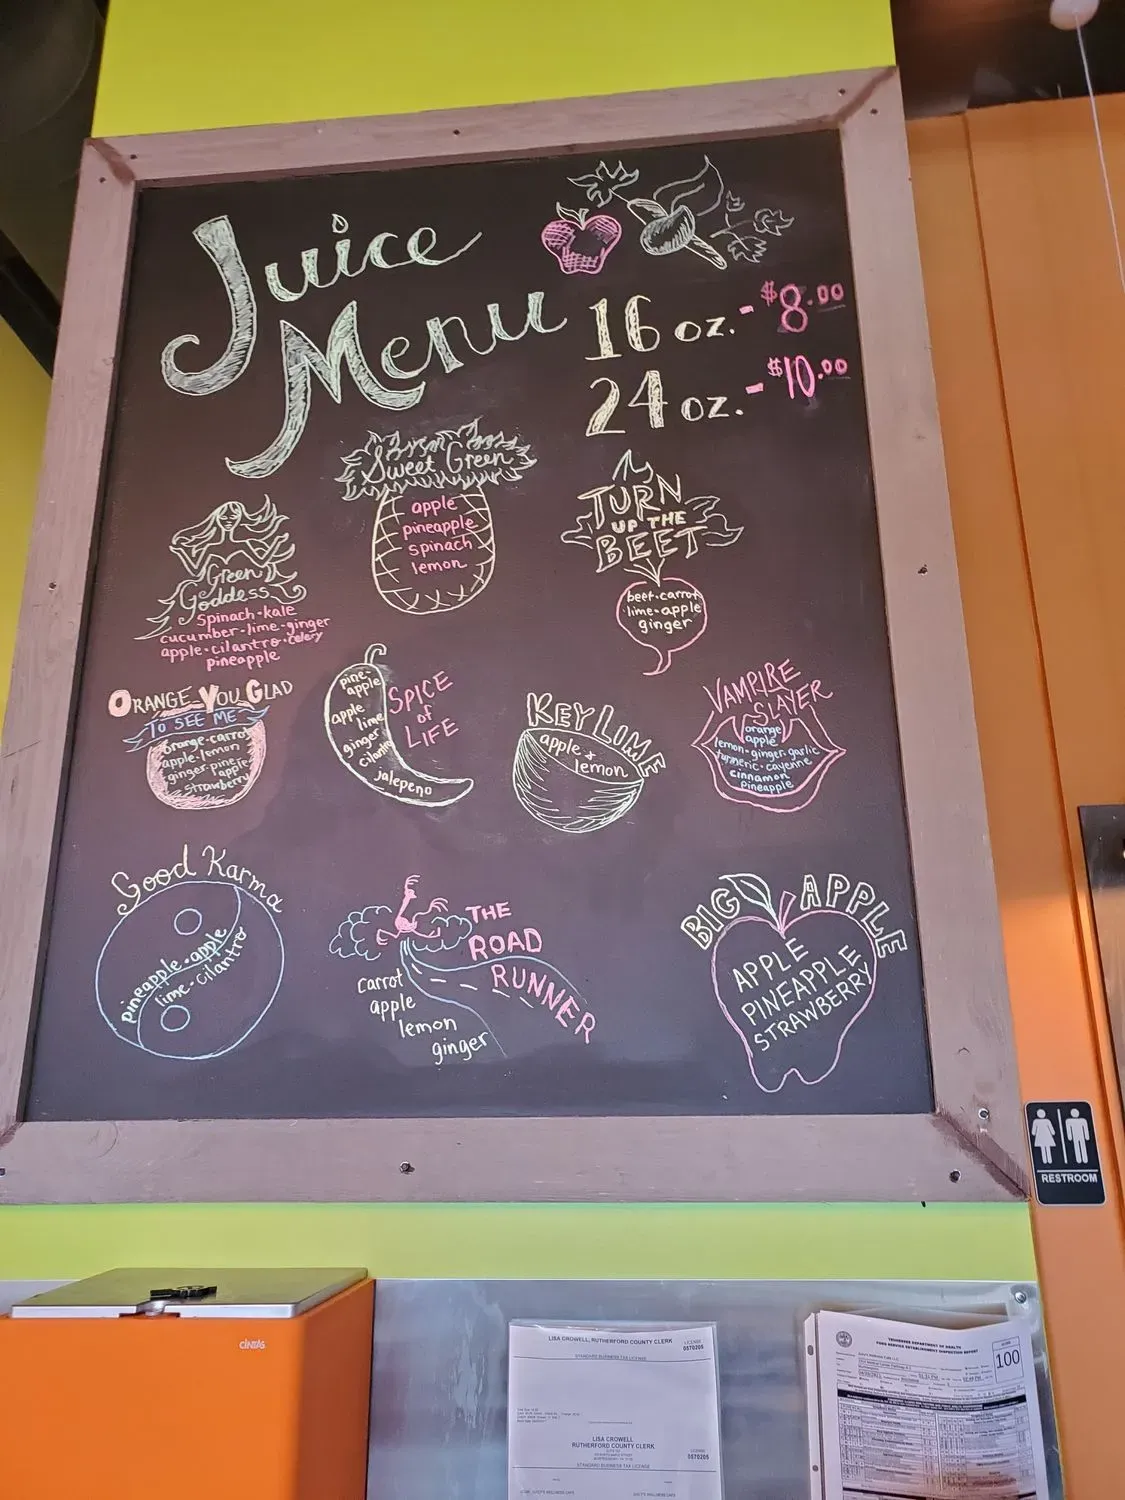 Juice
Menu
16 oz. - $8.00
24 oz. - $10.00
Sweet Green
apple
pineapple
spinach
lemon
TURN
UP THE
BEET
beet-carrot
lime-apple
ginger
Green
Goddess
spinach-kale
cucumber-lime-ginger
apple-cilantro-celery
pineapple
ORANGE YOU GLAD
TO SEE ME
orange-carrot
apple-lemon
ginger-pine
apple-
strawberry
SPICE
of
LIFE
pine-
apple
apple
lime
ginger
cilantro
jalepeno
KEY LIME
apple &
lemon
VAMPIRE
SLAYER
orange
apple
lemon-ginger-garlic
turmeric-cayenne
cinnamon
pineapple
Good Karma
pineapple-apple
lime-cilantro
THE
ROAD
RUNNER
carrot
apple
lemon
ginger
BIG APPLE
APPLE
PINEAPPLE
STRAWBERRY
RESTROOM
CINTAS
LISA CROWELL, RUTHERFORD COUNTY CLERK
LICENSE
0570205
STANDARD BUSINESS TAX LICENSE
LISA CROWELL
RUTHERFORD COUNTY CLERK
LICENSE
0570205
STANDARD BUSINESS TAX LICENSE
TENNESSEE DEPARTMENT OF HEALTH
FOOD SERVICE ESTABLISHMENT INSPECTION REPORT
100